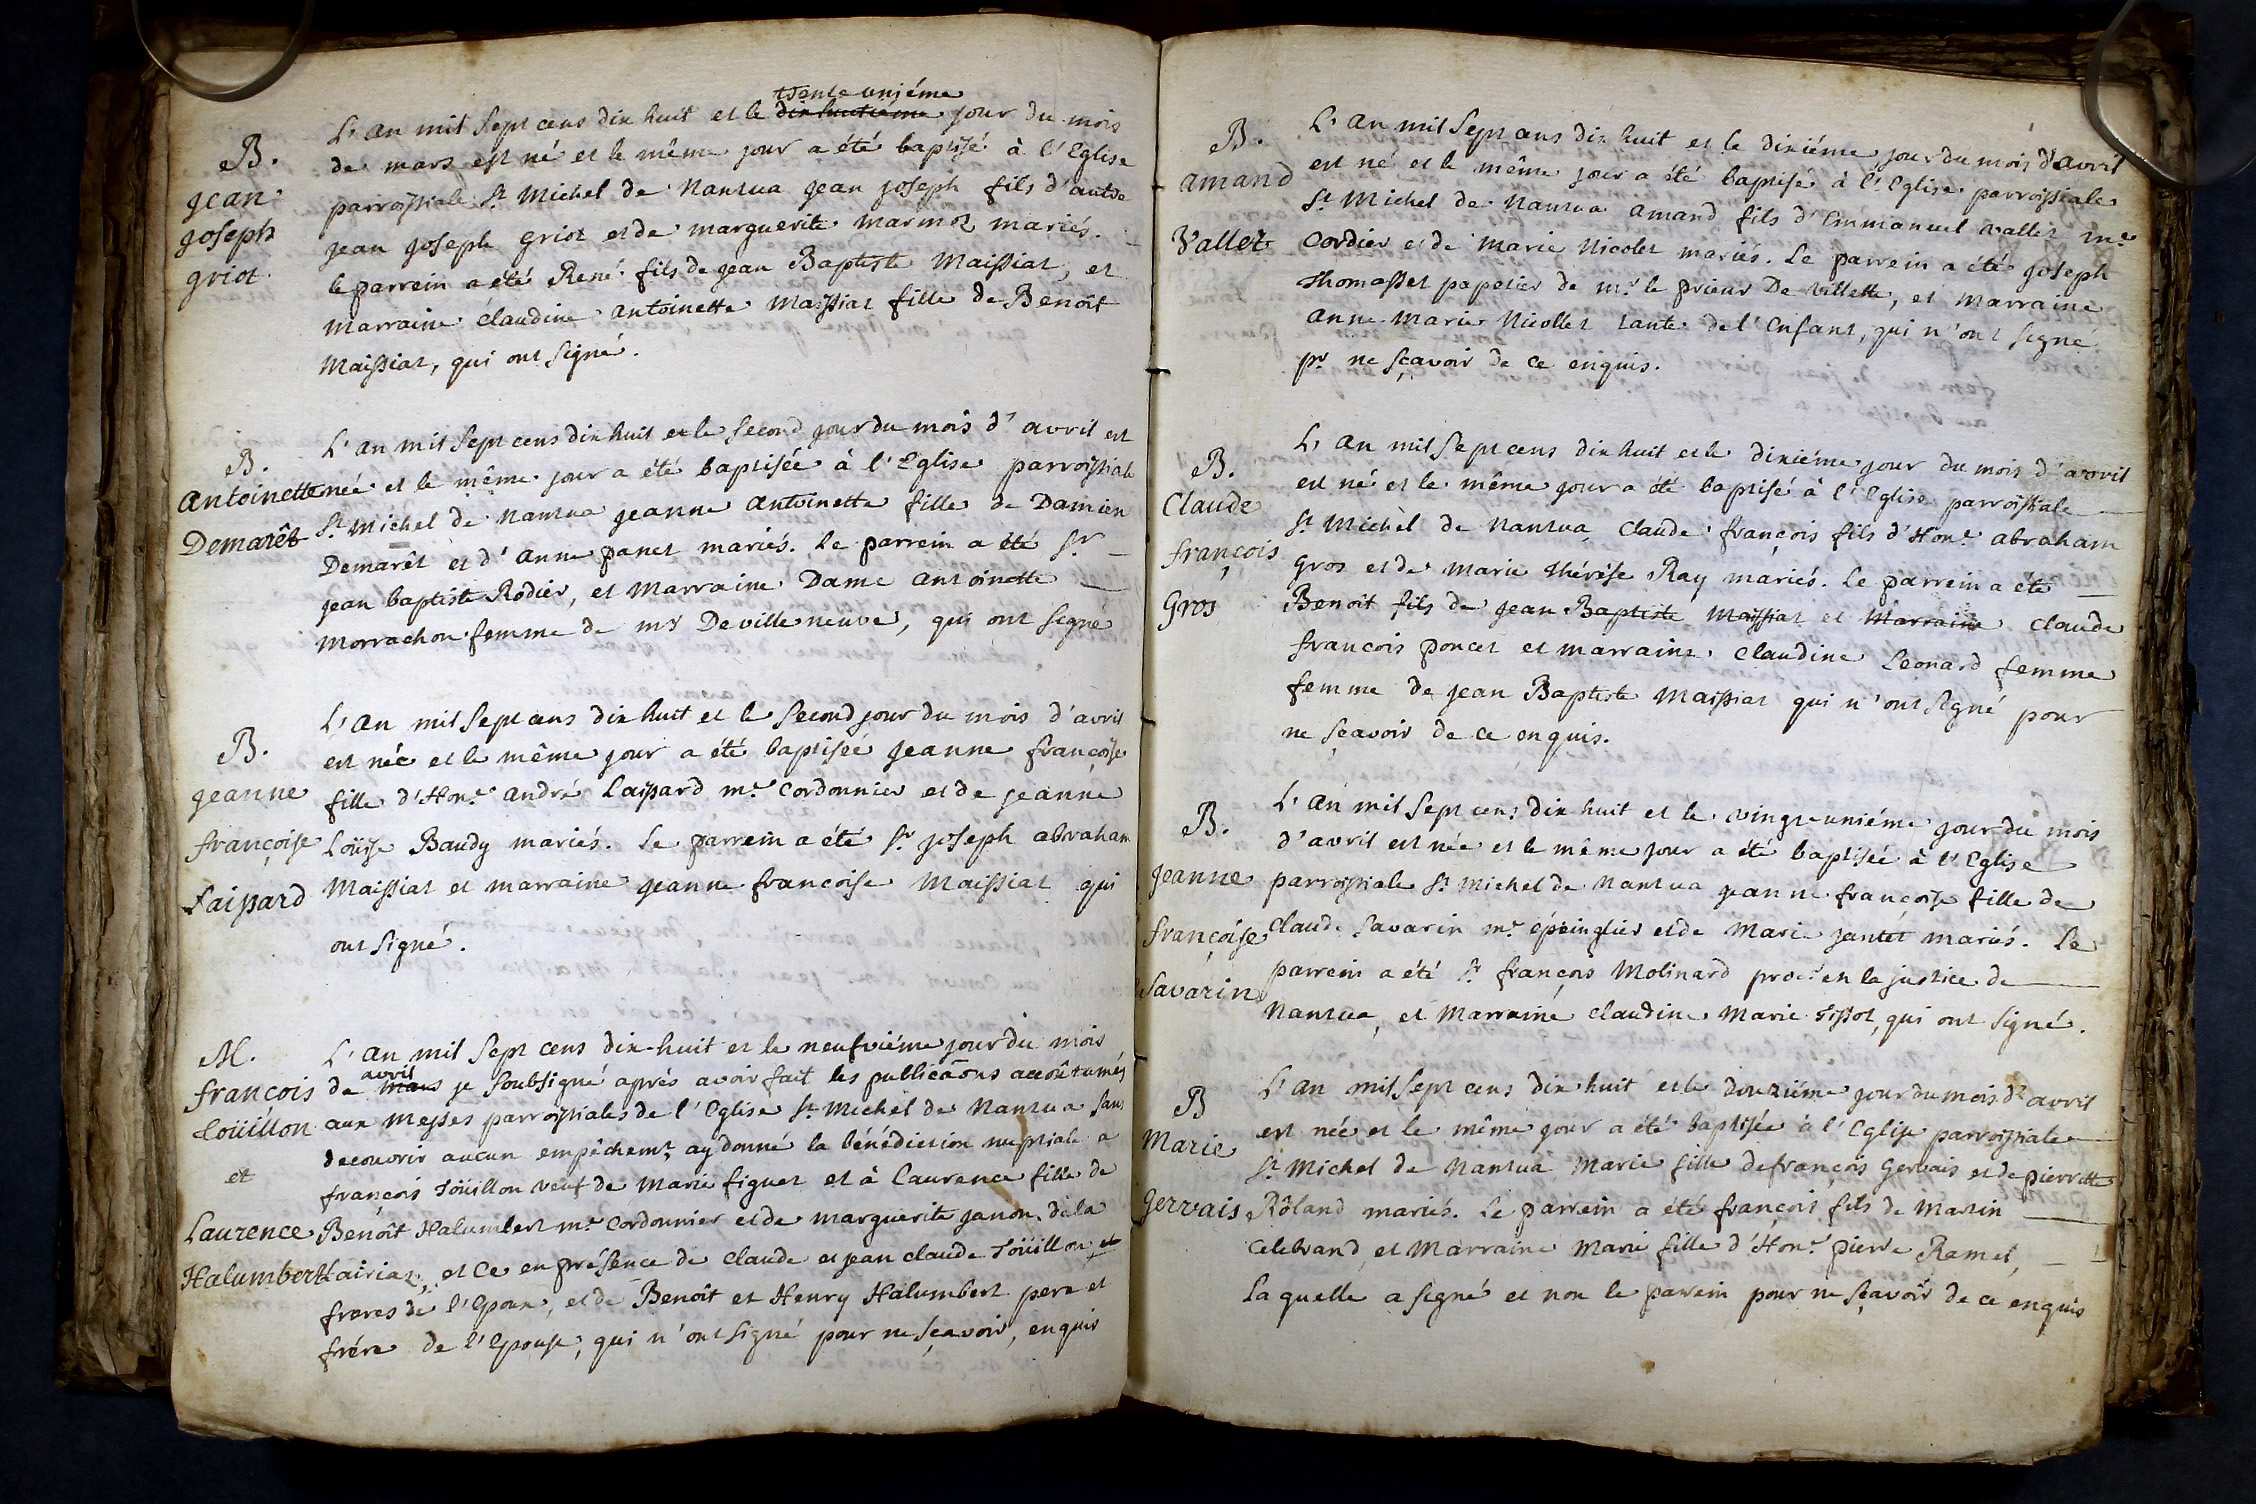 B.
Jean
Joseph
Griot.
L'an mil sept cens dix huit et le dix huitiéme trente uniéme jour du mois
de mars est né et le même jour a été baptisé à l'Eglise
parroissiale St Michel de Nantua Jean Joseph fils d'autre
Jean Joseph Griot et de Marguerite Marmoz mariés.
le parrein a été René fils de Jean Baptiste Maissiat, et
Marraine Claudine Antoinette Maissiat fille de Benoît
Maissiat, qui ont signé.
B.
Antoinette
Demarêt
L'an mil sept cens dix huit et le second jour du mois d'avril est
née et le même jour a été baptisée à l'Eglise parroissiale
St Michel de Nantua Jeanne Antoinette fille de Damien
Demarêt et d'Anne Panet mariés. Le parrein a été Sr
Jean Baptiste Rodier, et Marraine Dame Antoinette
Morrachon femme de mr Devilleneuve, qui ont signé
B.
Jeanne
Françoise
Laissard
L'an mil sept cens dix huit et le second jour du mois d'avril
est née et le même jour a été baptisée Jeanne Françoise
fille d'Hon.e André Laissard m.e Cordonnier et de Jeanne
Loüise Baudy mariés. Le parrein a été Sr Joseph Abraham
Maissiat et marraine Jeanne Francoise Maissiat qui
ont signé.
M.
François
Toüillon
et
Laurence
Halumbert
L'an mil sept cens dix-huit et le neufviéme jour du mois
de mars avril je soubsigné aprés avoir fait les publicãons accoûtumés
aux Messes parroissiales de l'Eglise St Michel de Nantua sans
decouvrir aucun empêchemt, ay donné la bénédiction nuptiale a
François Toüillon veuf de Marie Figuet et à Laurence fille de
Benoît Halumbert m.e Cordonnier et de Marguerite Janon dela
Lairiaz, et ce en présence de Claude et Jean Claude Toüillon et
freres de l'Epoux, et de Benoît et Henry Halumbert pere et
frére de l'Epouse, qui n'ont signé pour ne sçavoir, enquis
B.
Amand
Vallet
L'an mil sept cens dix huit et le dixiéme jour du mois d'avril
est né et le même jour a été baptisé à l'Eglise parroissiale
St Michel de Nantua Amand fils d'Emmanuel Vallet m.e
Cordier et de Marie Nicolet mariés. Le parrein a été Joseph
Thomasset papetier de mr le prieur De Villette, et Marraine
Anne Marie Nicollet tante de l'Enfant, qui n'ont signé
pr ne sçavoir de ce enquis.
B.
Claude
François
Gros
L'an mil sept cens dix huit et le dixiéme jour du mois d'avril
est né et le même jour a été baptisé à l'Eglise parroissiale
St Michèl de Nantua, Claude François fils d'Hon.e Abraham
Gros et de Marie Thérèse Ray mariés. Le parrein a été
Benoît fils de Jean Baptiste Maissiat et Marraine Claude
François Poncet et marraine Claudine Leonard femme
femme de Jean Baptiste Maissiat qui n'ont signé pour
ne sçavoir de ce enquis.
B.
Jeanne
Françoise
Savarin
L'an mil sept cens dix huit et le vingt-uniéme jour du mois
d'avril est née et le même jour a été baptisée à l'Eglise
parroissiale St Michel de Nantua Jeanne Françoise fille de
Claude Savarin m.e épeinglier et de Marie Jantet mariés. Le
parrein a été Sr François Molinard procr en la justice de
Nantua, et Marraine Claudine Marie Tissot, qui ont signé.
B
Marie
Gervais
L'an mil sept cens dix huit et le douziême jour du mois d'avril
est née et le même jour a été baptisée à l'Eglise parroissiale
St Michel de Nantua Marie fille de François Gervais et de Pierrette
Rôland mariés. Le parrein a été François fils de Martin
Celebrand, et Marraine Marie fille d'Hon.e Pierre Ramel,
Laquelle a signé et non le parrein pour ne sçavoir de ce enquis